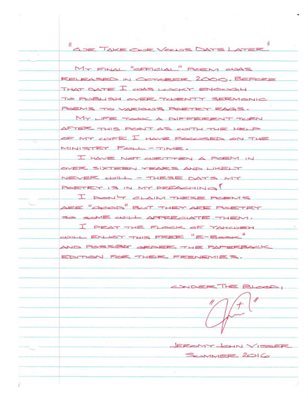 "Our Take Our Vows Days Later"
My final "official" poem was
released in October 2000. Before
that date I was lucky enough
to publish over twenty sermonic
poems to various poetry rags.
My life took a different turn
after this point as with the help
of my wife I have focused on the
ministry full-time.
I have not written a poem in
over sixteen years and likely
never will - these days my
poetry is in my preaching!
I don't claim these poems
are "good" but they are poetry
so some will appreciate them.
I pray the flock of Yahweh
will enjoy this free "E-Book"
and possibly order the paperback
edition for their frenemies.
Under The Blood,
Jeromy John Visser
Summer 2016